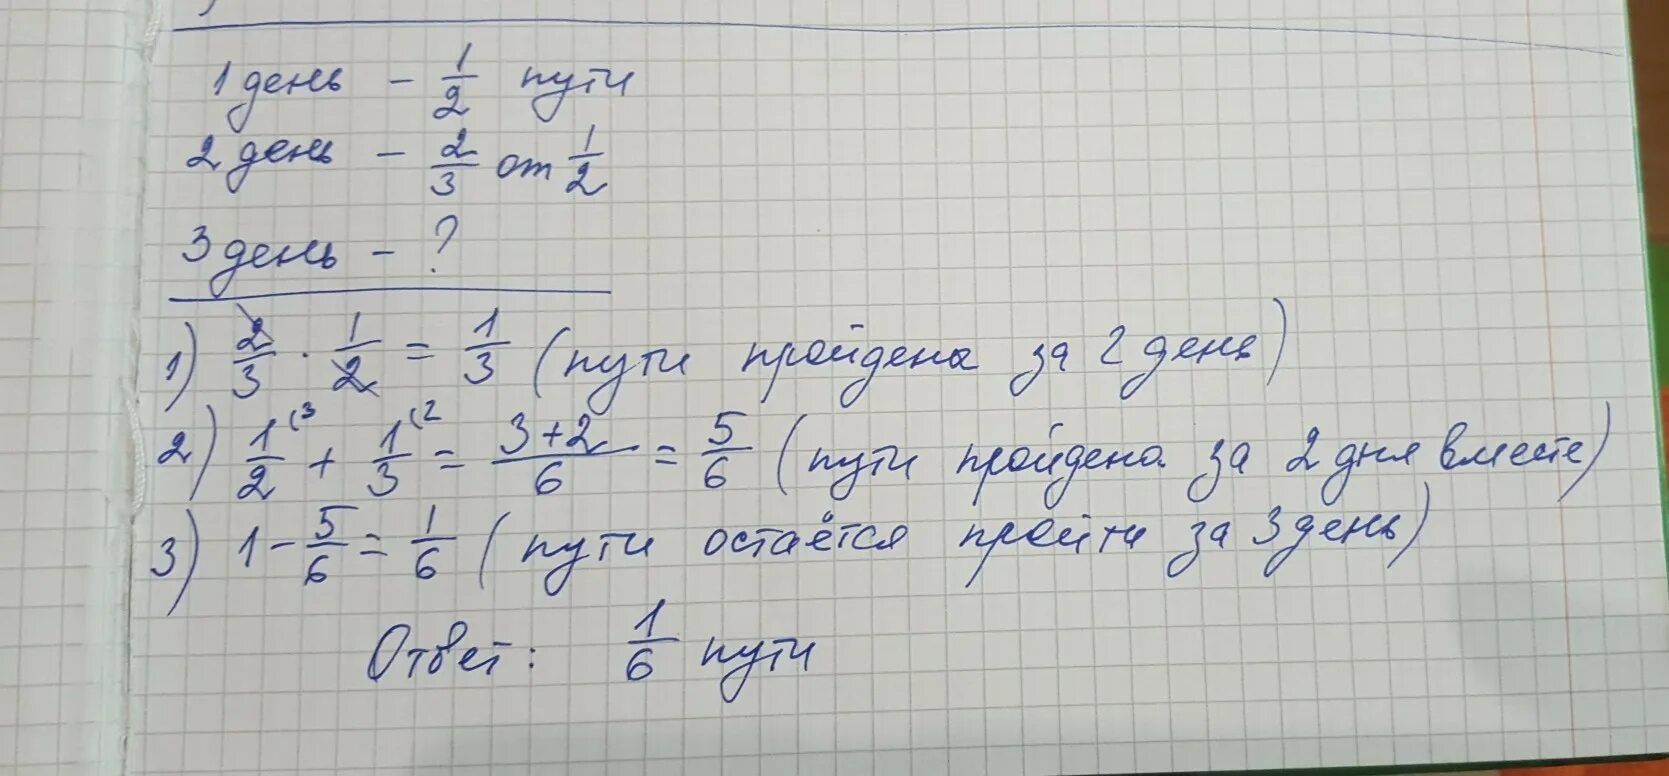 1 день - 1/2 пути
2 день - 2/3 от 1/2
3 день - ?
1) 2/3 · 1/2 = 1/3 (пути пройдена за 2 день)
2) 1/2 (3 + 1/3 (2 = 3+2/6 = 5/6 (пути пройдено за 2 дня вместе)
3) 1 - 5/6 = 1/6 (пути остаётся пройти за 3 день)
Ответ: 1/6 пути